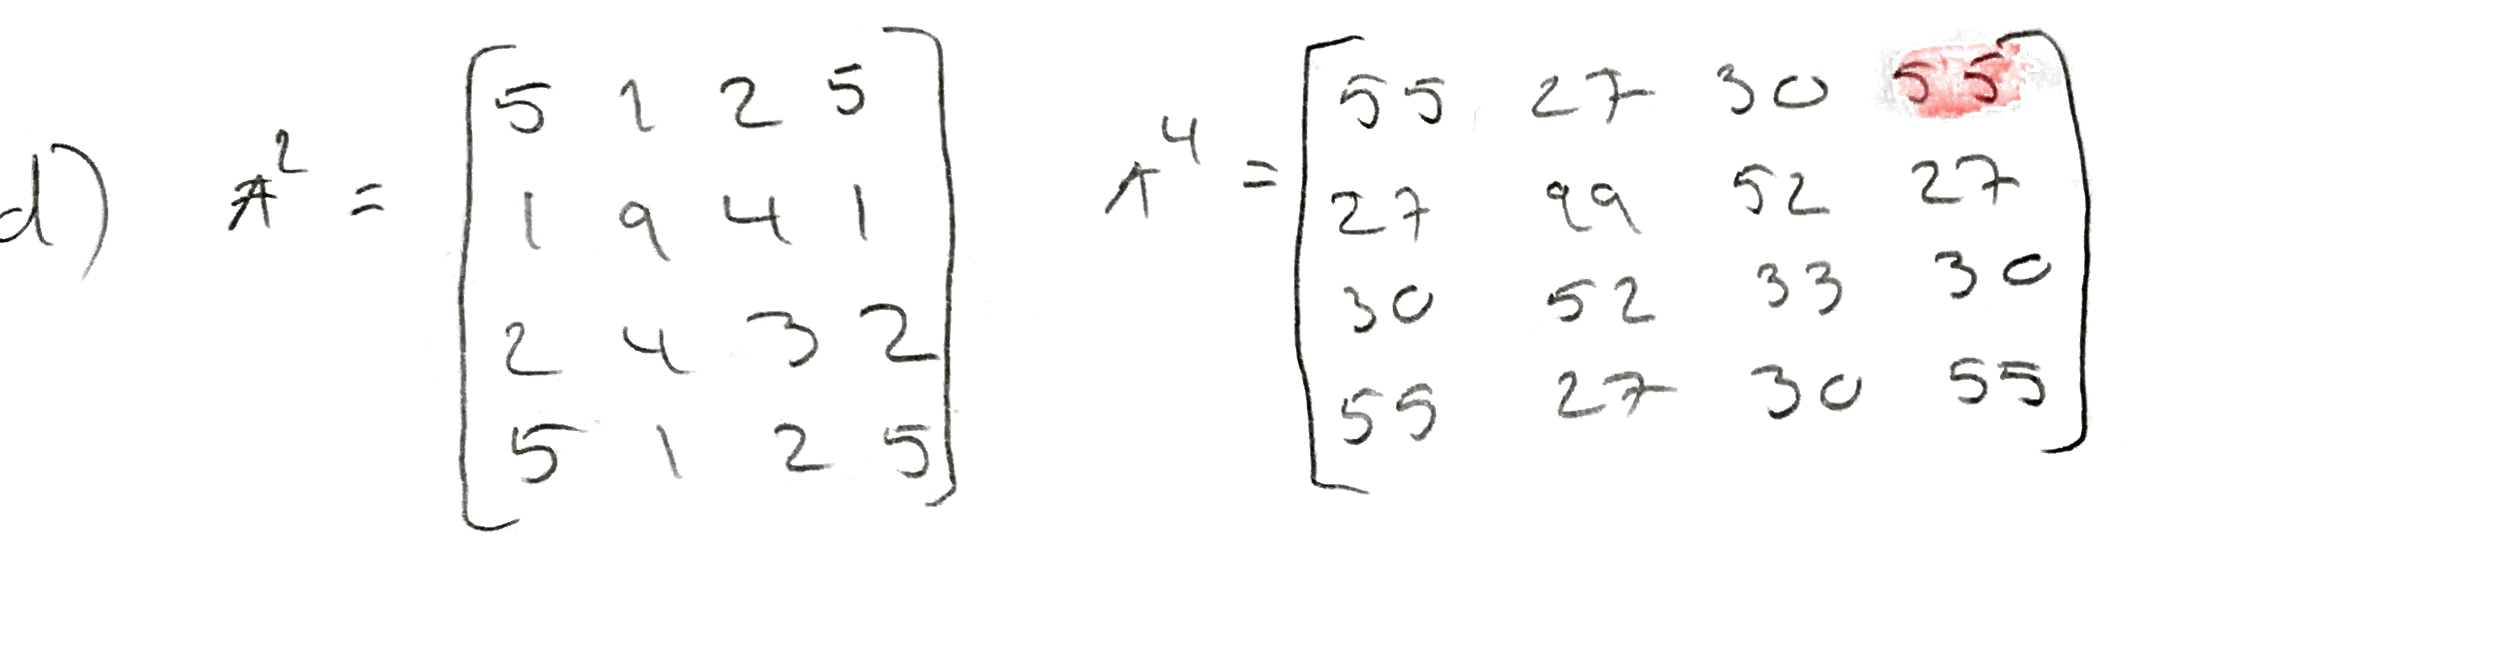 d) A² = [5 1 2 5
1 9 4 1
2 4 3 2
5 1 2 5]
A⁴ = [55 27 30 55
27 99 52 27
30 52 33 30
55 27 30 55]